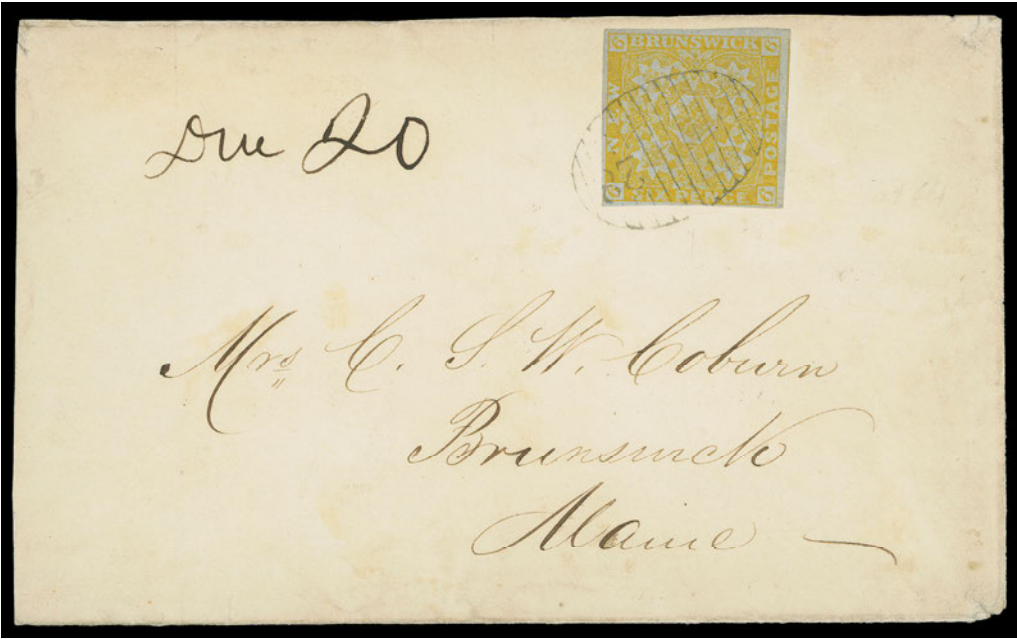 Due 20
6 BRUNSWICK 6
NEW
POSTAGE
6 SIX PENCE 6
Mrs C. S. W. Coburn
Brunswick
Maine